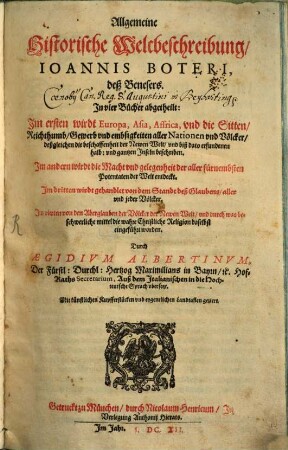 Allgemeine
Historische Weltbeschreibung/
IOANNIS BOTERI,
deß Benesers.
Coenobij Can. Reg. S. Augustini in Beyharting.
In vier Bücher abgetheilt:
Im ersten wirdt Europa, Asia, Affrica, vnd die Sitten/
Reichthumb/ Gewerb vnd embsigkeiten aller Nationen vnd Völcker/
deßgleichen die beschaffenheit der Newen Welt/ vnd biß dato erfundenen
halb: vnd gantzen Inseln beschriben,
Im andern wirdt die Macht vnd gelegenheit der aller fürnembsten
Potentaten der Welt entdeckt.
Im dritten wirdt gehandlet von dem Standt deß Glaubens/ aller
vnd jeder Völcker.
In vierten von den Aberglauben der Völcker der Newen Welt/ vnd durch was be-
schwerliche mittel die wahre Christliche Religion daselbst
eingeführt worden.
Durch
ÆGIDIVM ALBERTINVM,
Der Fürstl: Durchl: Hertzog Maximilians in Bayrn/ ꝛc. Hof-
Raths Secretarium, Auß dem Italianischen in die Hoch-
teutsche Sprach vbersetzt.
Mit künstlichen Kupfferstücken vnd eygentlichen Landtaflen geziert.
Getruckt zu München/ durch Nicolaum Henricum/ In
Verlegung Anthonij Hierats.
Im Jahr. I. DC. XII.